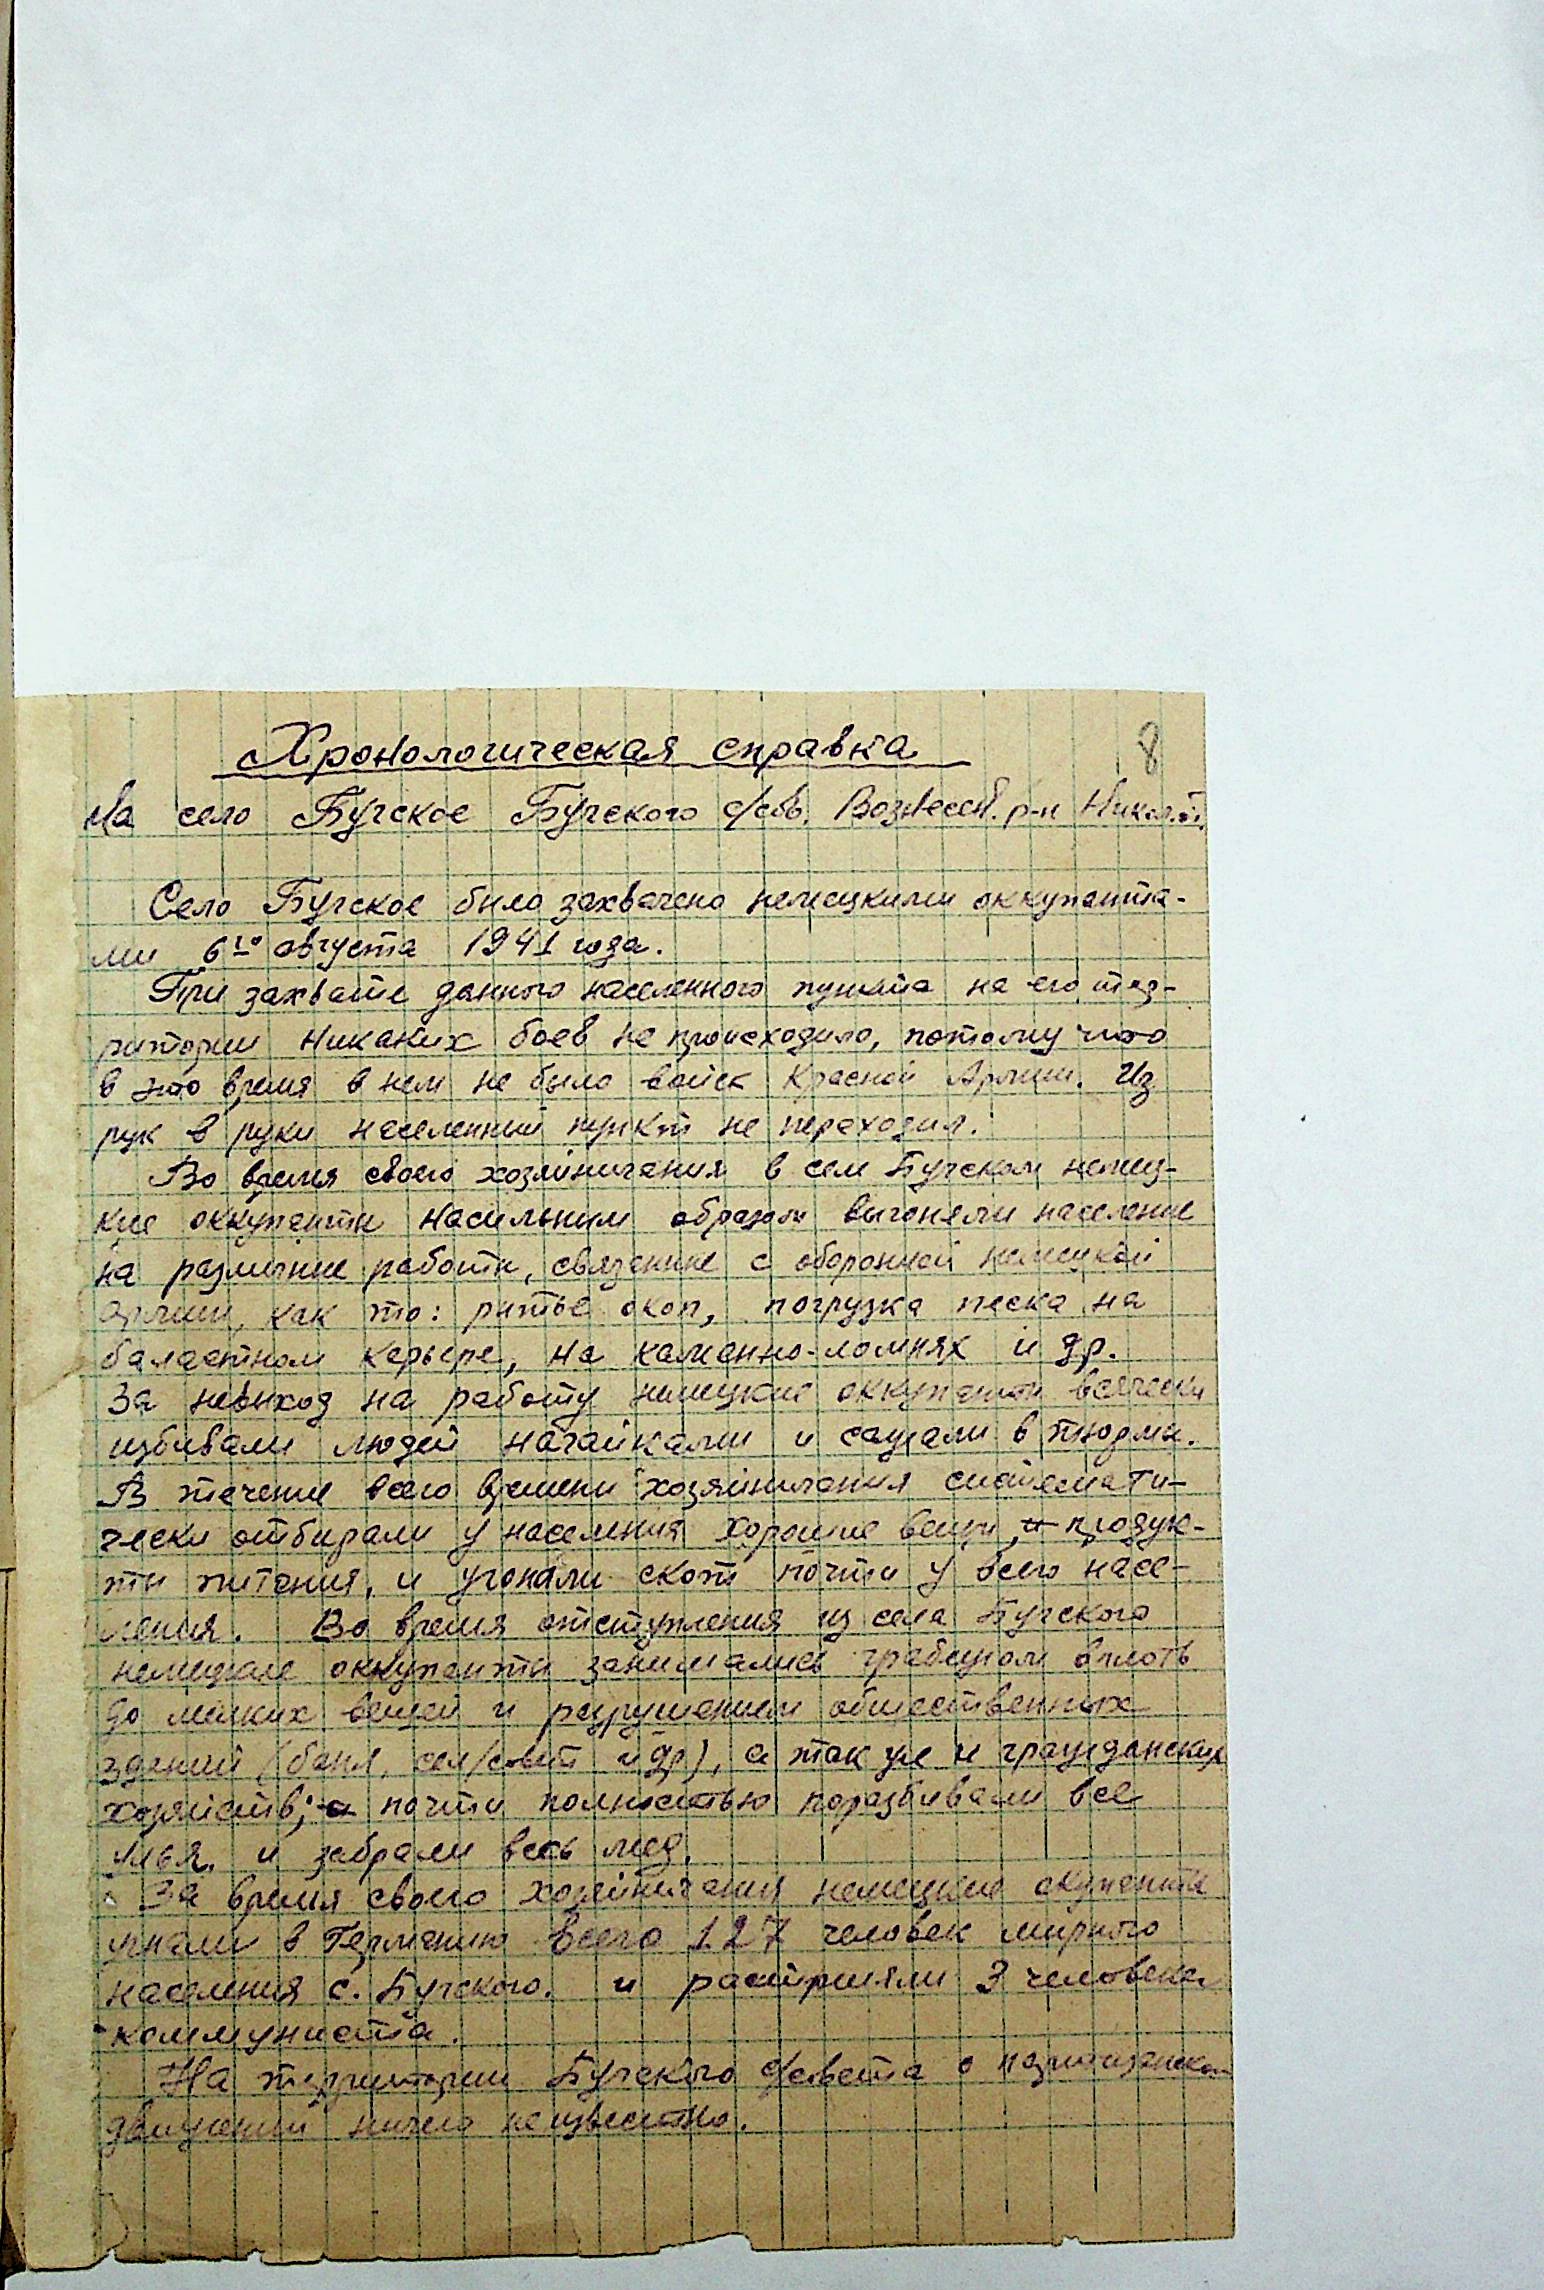 8
Хронологическая справка
На село Бугское Бугского с/сов. Вознесен. р-н Никол. о.
Село Бугское было захвачено немецкими оккупанта-
ми 6го августа 1941 года.
При захвате данного населенного пункта на его тер-
ритории никаких боев не происходило, потому что
в это время в нем не было войск Красной Армии. Из
рук в руки населенний пункт не переходил.
Во время своего хозяйничания в селе Бугском немец-
кие оккупанти насильним образом выгоняли население
на различние работи, связание с обороной немецкой
армии, как то: ритье окоп, погрузка песка на
баластном карьере, на каменно-ломнях и др.
За невиход на работу немецкие оккупанти всячески
избивали людей нагайками и сажали в тюрьми.
В течение всего времени хозяйничания системати-
чески отбирали у населения хорошие вещи, и продук-
ти питания, и угоняли скот почти у всего насе-
ления. Во время отступления из села Бугского
немецкие оккупанти занимались грабежом вплоть
до мелких вещей и разрушением общественных
зданий (баня, сел/совет и др), а так же и гражданских
хозяйств; а почти полностью поразбивали все
улья, и забрали весь мед.
За время своего хозяйничания немецкие окупанти
угнали в Германию всего 127 человек мирного
населения с. Бугского. и расстреляли 3 человека
коммуниста.
На территории Бугского с/совета о партизанском
движении ничего неизвестно.